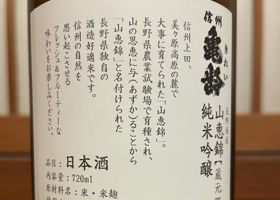 信州
亀齢
きれい
長野県産
山恵錦
純米吟醸
蔵元
信州上田、
美ヶ原高原の麓で
大事に育てられた「山恵錦」。
長野県農業試験場で育種され、
山の恩恵に与(あずか)ることから
「山恵錦」と名付けられた
長野県独自の
酒造好適米です。
信州の自然を
思い起こさせる
フレッシュ&フルーティーな
味わいをお楽しみください。
日本酒
内容量:720ml
原材料名:米・米麹